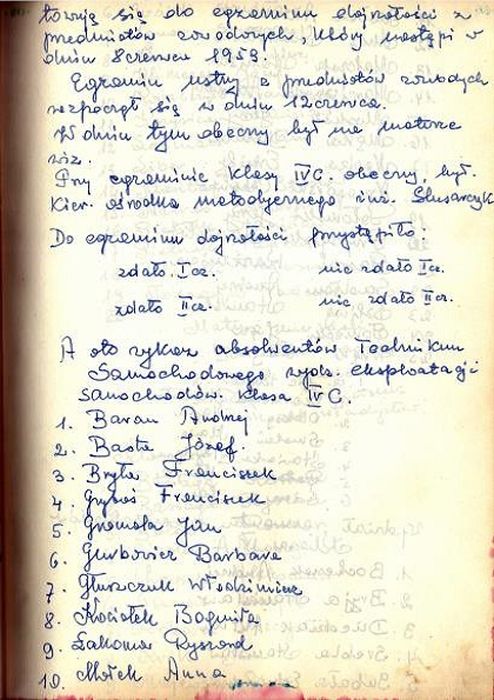 towują się do egzaminu dojrzałości z
przedmiotów zawodowych, który nastąpi w
dniu 8 czerwca 1959.
Egzamin ustny z przedmiotów zawodych
rozpoczął się w dniu 12 czerwca.
W dniu tym obecny był na maturze
wiz.
Przy egzaminie klasy IVC. obecny, był.
Kier. ośrodka metodycznego inż. Ślusarczyk
Do egzaminu dojrzałości przystąpiło:
zdało. I cz. nie zdało I cz.
zdało II cz. nie zdało II cz.
A oto wykaz absolwentów Technikum
Samochodowego wydz. eksploatacji
samochodów. klasa IVC.
1. Baran Andrzej
2. Basta Józef.
3. Bryła Franciszek
4. Franciszek
5. Gromala Jan
6. Barbara
7. Głuszczuk Włodzimierz
8. Kociołek Bogusława
9. Łakoma Ryszard
10. Miołek Anna